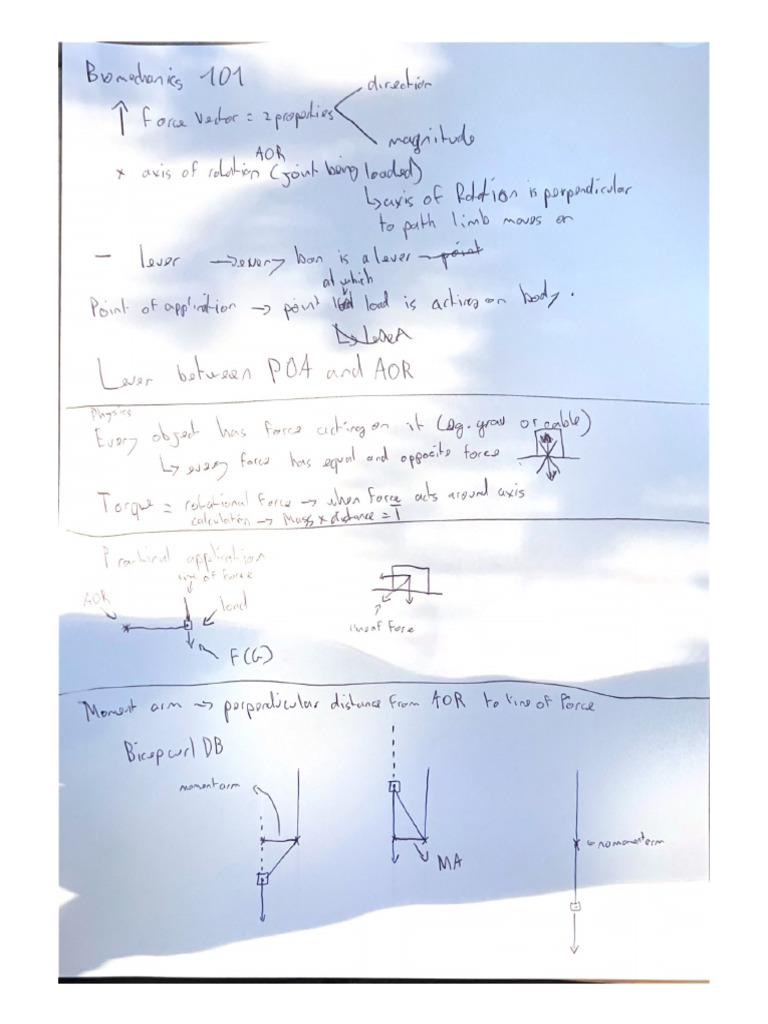 Biomechanics 101
direction
↑ Force Vector = 2 properties
magnitude
AOR
x axis of rotation (joint being loaded)
↳ axis of Rotation is perpendicular
to path limb moves on
- lever → every bon is a lever point
at which
Point of application → point load is acting on body.
↳ LOGA
Lever between POA and AOR
Physics
Every object has force acting on it (eg. grav or cable)
↳ every force has equal and opposite force
Torque = rotational force → when force acts around axis
calculation → Mass x distance = T
Practical application
line of Force
AOR
load
line of Force
F(G)
Moment arm → perpendicular distance from AOR to line of Force
Bicep curl DB
moment arm
MA
no moment arm